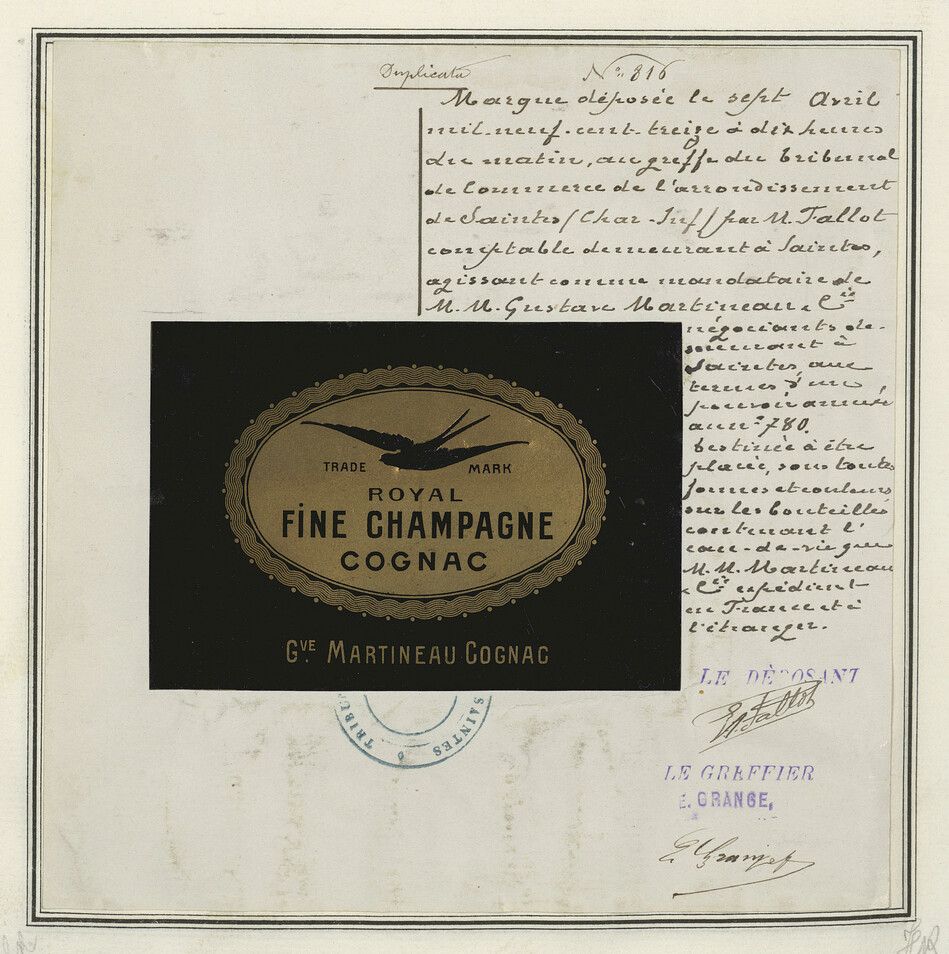 Duplicata
N° 816
Marque déposée le sept Avril
mil-neuf-cent-treize à dix heures
du matin, au greffe du tribunal
de Commerce de l'arrondissement
de Saintes (Char-Inf) par M. Fallot
comptable demeurant à Saintes,
agissant comme mandataire de
M. M. Gustave Martineau & Cie
négociants de-
meurant à
Saintes, aux
termes d'un
pouvoir annexé
au n° 780.
Destinée à être
placée, sous toutes
formes et couleurs
sur les bouteilles
contenant l'
eau-de-vie que
M. M. Martineau
& Cie expédient
en France et à
l'étranger.
TRADE MARK
ROYAL
FINE CHAMPAGNE
COGNAC
GVE MARTINEAU COGNAC
TRIBU SAINTES
LE DÉPOSANT
Fallot
LE GREFFIER
E. GRANGE,